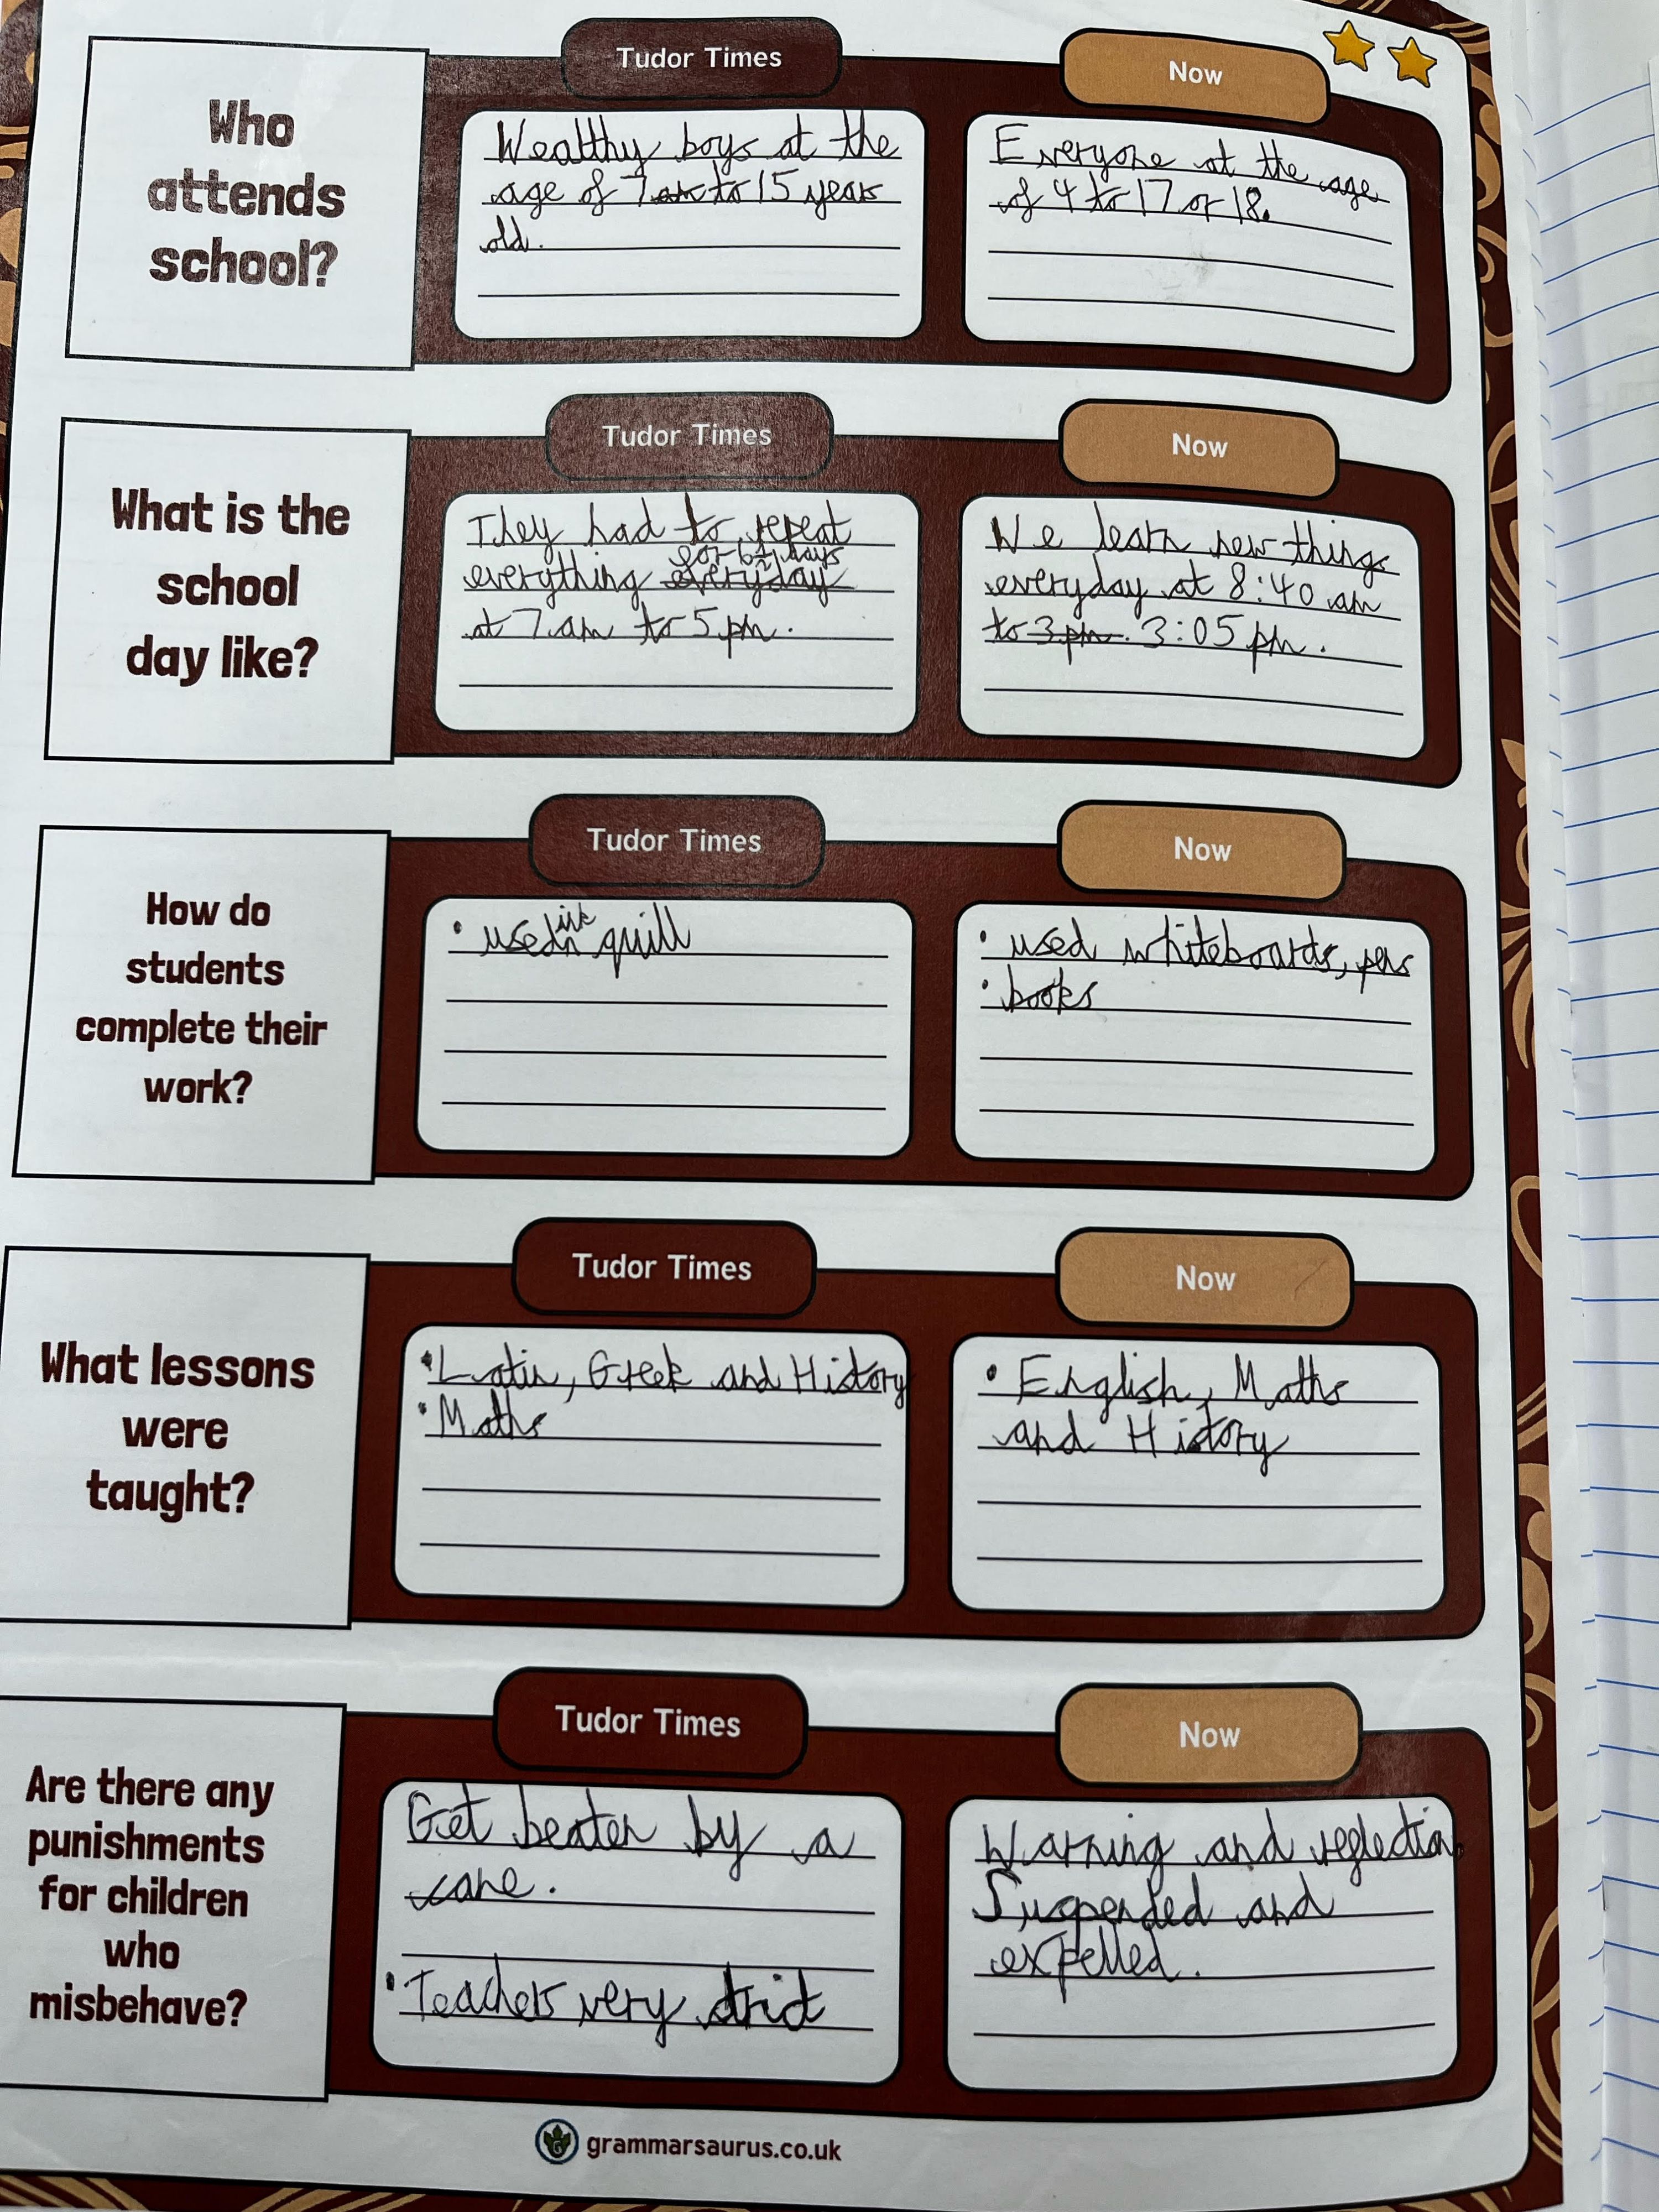 Who
attends
school?
Tudor Times
Wealthy boys at the
age of 7 am to 15 years
old.
Now
Everyone at the age
of 4 to 17 or 18.
What is the
school
day like?
Tudor Times
They had to repeat
for 6½ days
everything everyday
at 7am to 5pm.
Now
We learn new things
everyday at 8:40 am
to 3 pm. 3:05 pm.
How do
students
complete their
work?
Tudor Times
• used ink quill
Now
• used whiteboards, pens
• books
What lessons
were
taught?
Tudor Times
• Latin, Greek and History
• Maths
Now
• English, Maths
and History
Are there any
punishments
for children
who
misbehave?
Tudor Times
Get beaten by a
cane.
• Teachers very strict
Now
Warning and reflection
Suspended and
expelled.
grammarsaurus.co.uk